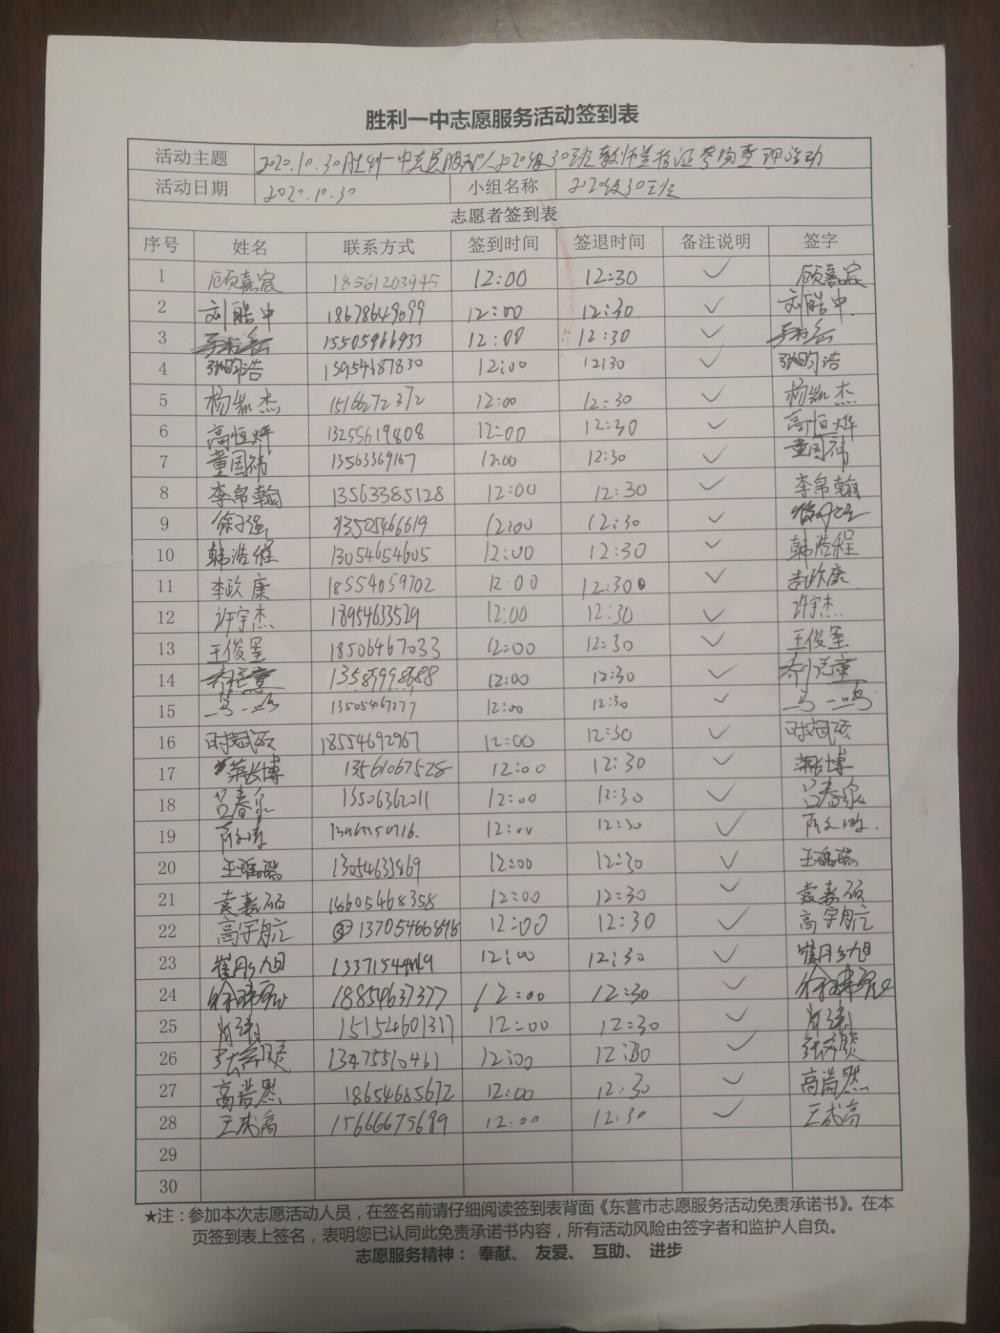 胜利一中志愿服务活动签到表
活动主题 2020.10.30胜利一中志愿服务 2020级30班教师资格证考场整理活动
活动日期 2020.10.30 小组名称 2020级30班
志愿者签到表
序号 姓名 联系方式 签到时间 签退时间 备注说明 签字
1 顾嘉宸 18561203945 12:00 12:30 ✓ 顾嘉宸
2 刘皓中 18678649099 12:00 12:30 ✓ 刘皓中
3 15505966933 12:00 12:30 ✓
4 张昀浩 15954387830 12:00 12:30 ✓ 张昀浩
5 杨凯杰 15166272372 12:00 12:30 ✓ 杨凯杰
6 高恒烨 13255619808 12:00 12:30 ✓ 高恒烨
7 董国祎 13563369167 12:00 12:30 ✓ 董国祎
8 李帛翰 13563385128 12:00 12:30 ✓ 李帛翰
9 徐子强 13505466619 12:00 12:30 ✓
10 韩浩程 13054654605 12:00 12:30 ✓ 韩浩程
11 李政康 18554059702 12:00 12:30 ✓ 李政康
12 许宇杰 18954633529 12:00 12:30 ✓ 许宇杰
13 王俊垔 18506467033 12:00 12:30 ✓ 王俊垔
14 12:00 12:30 ✓
15 马一鸣 13505467277 12:00 12:30 ✓ 马一鸣
16 时斌硕 18554692967 12:00 12:30 ✓ 时斌硕
17 荣长博 13561067528 12:00 12:30 ✓ 荣长博
18 吕春泉 13506362011 12:00 12:30 ✓ 吕春泉
19 12:00 12:30 ✓
20 王瑞瑞 13054633869 12:00 12:30 ✓ 王瑞瑞
21 袁嘉硕 18605468358 12:00 12:30 ✓ 袁嘉硕
22 高宇航 13705466898 12:00 12:30 ✓ 高宇航
23 崔月旭 12:00 12:30 ✓ 崔月旭
24 18854637377 12:00 12:30 ✓
25 15154601317 12:00 12:30 ✓
26 13475510461 12:00 12:30 ✓
27 高浩然 18654685672 12:00 12:30 ✓ 高浩然
28 王武高 15666675689 12:00 12:30 ✓ 王武高
29
30
★注：参加本次志愿活动人员，在签名前请仔细阅读签到表背面《东营市志愿服务活动免责承诺书》。在本
页签到表上签名，表明您已认同此免责承诺书内容，所有活动风险由签字者和监护人自负。
志愿服务精神： 奉献、 友爱、 互助、 进步